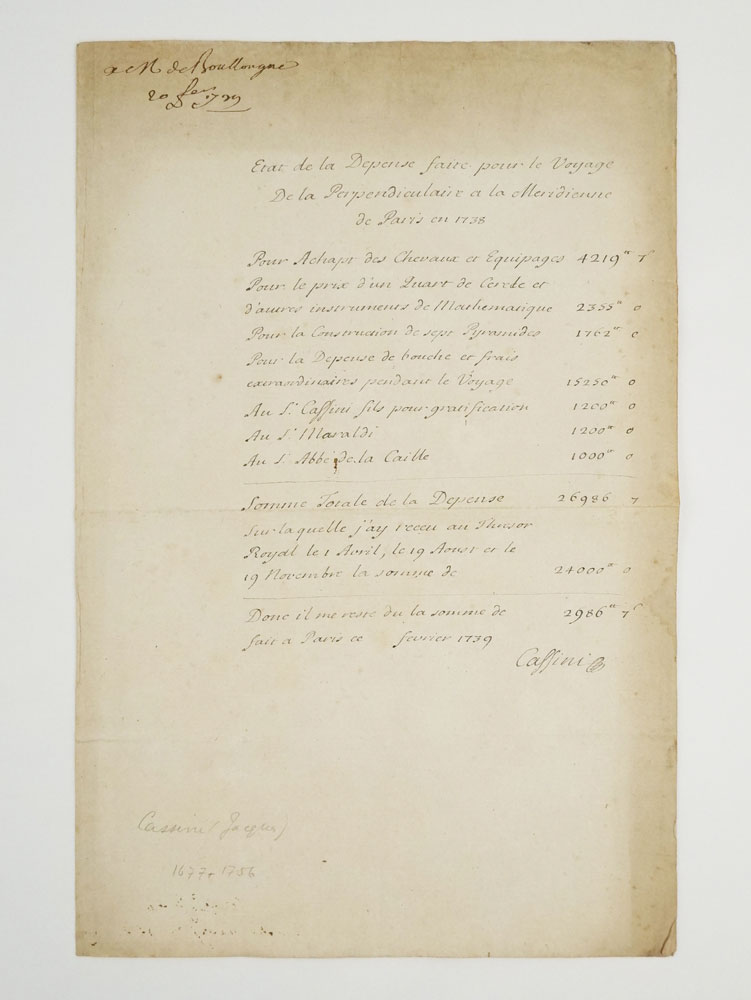 a M de Boullongne
20 fer 1739
Etat de la Depense faite pour le Voyage
De la Perpendiculaire a la Meridienne
de Paris en 1738
Pour Achapt des Chevaux et Equipages 4219ᵗᵗ 7ˢ
Pour le prix d'un Quart de Cercle et
d'autres instruments de Mathematique 2355ᵗᵗ 0
Pour la Construction de sept Pyramides 1762ᵗᵗ 0
Pour la Depense de bouche et frais
extraordinaires pendant le Voyage 15250ᵗᵗ 0
Au Sʳ Cassini fils pour gratification 1200ᵗᵗ 0
Au Sʳ Maraldi 1200ᵗᵗ 0
Au S. Abbé de la Caille 1000ᵗᵗ 0
Somme Totale de la Depense 26986 7
Sur laquelle j'ay receu au Thresor
Royal le 1 Avril, le 19 Aoust et le
19 Novembre la somme de 24000ᵗᵗ 0
Donc il me reste du la somme de 2986ᵗᵗ 7ˢ
fait a Paris ce fevrier 1739
Cassini
Cassini (Jacques)
1677-1756